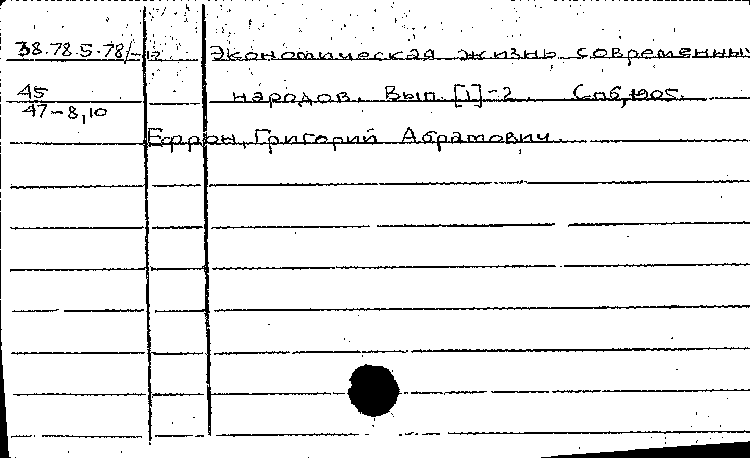 38.78.5.78/-12 Экономическая жизнь современных
45 народов. Вып. [1]-2. Спб, 1905.
47-8,10
Ефрон, Григорий Абрамович.